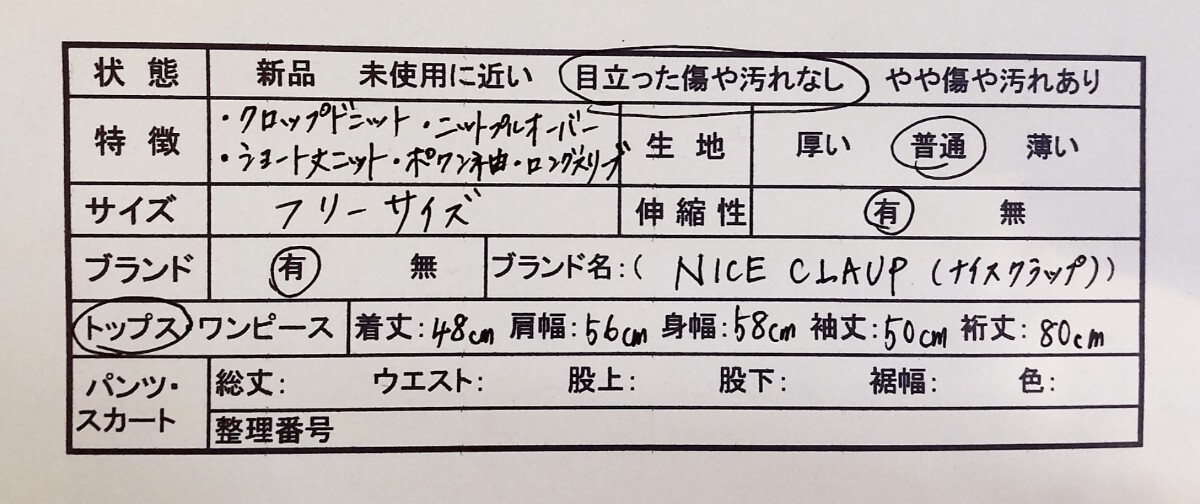 状態 新品 未使用に近い 目立った傷や汚れなし やや傷や汚れあり
特徴 ・クロップドニット ・ニットプルオーバー
・ショート丈ニット・ポワン袖・ロングスリーブ
生地 厚い 普通 薄い
サイズ フリーサイズ 伸縮性 有 無
ブランド 有 無 ブランド名:( NICE CLAUP (ナイスクラップ))
トップス ワンピース 着丈:48cm 肩幅:56cm 身幅:58cm 袖丈:50cm 裄丈:80cm
パンツ・
スカート
総丈: ウエスト: 股上: 股下: 裾幅: 色:
整理番号